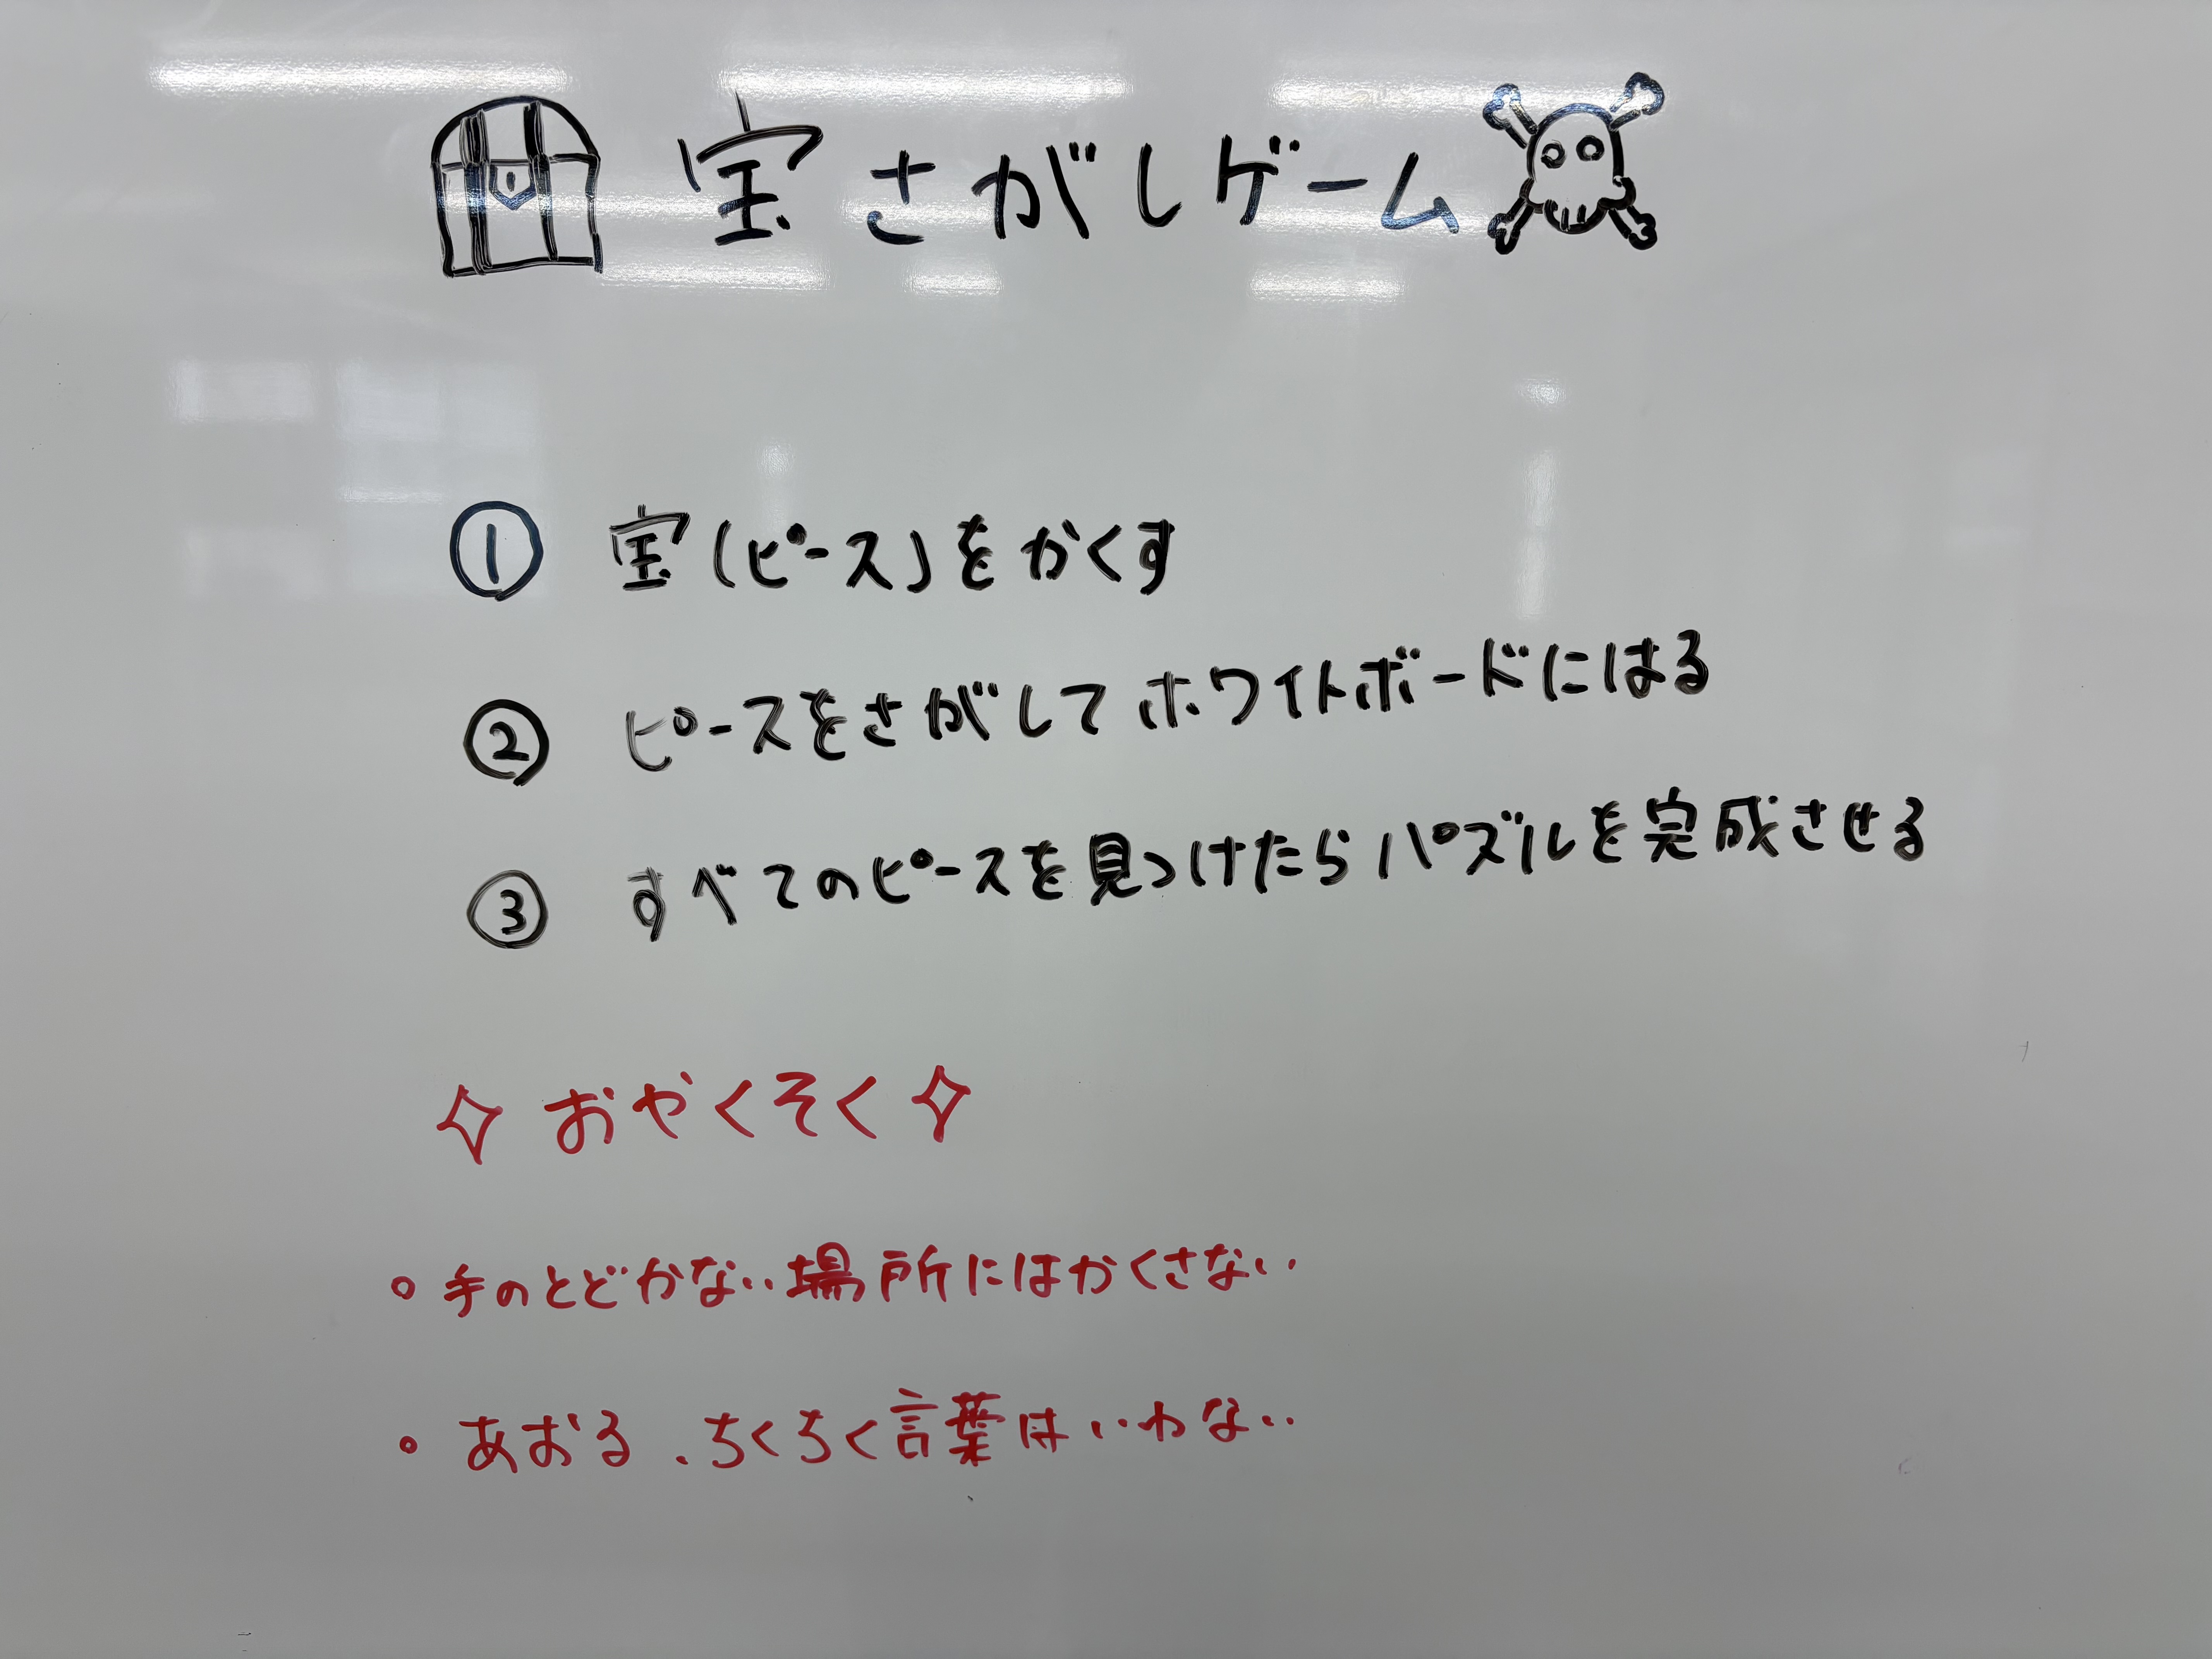 宝さがしゲーム
① 宝(ピース)をかくす
② ピースをさがしてホワイトボードにはる
③ すべてのピースを見つけたらパズルを完成させる
✧ おやくそく ✧
• 手のとどかない場所にはかくさない
• あおる.ちくちく言葉はいわない